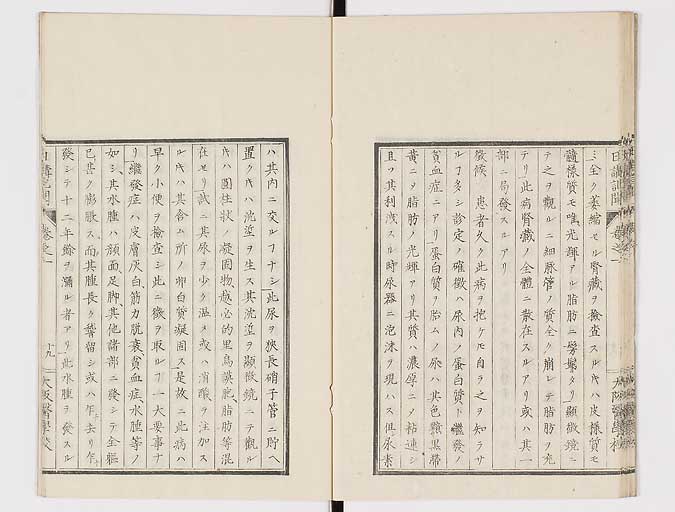 ミ全ク萎縮セル腎臓ヲ檢査スルニハ皮様質モ
髓様質モ唯光輝アル脂肪ニ髣髴タリ顯微鏡ニ
テ之ヲ觀ルニ細脈管ノ質全ク崩レテ脂肪ヲ充
テリ此病腎臓ノ全體ニ散在スルアリ或ハ其一
部ニ局發スルアリ
徴候 患者久ク此病ヲ抱ケモ自ラ之ヲ知ラサ
ルヿ多シ診定ノ確徴ハ尿内ノ蛋白質ト繼發ノ
貧血症ニアリ蛋白質ヲ胎ムノ尿ハ其色黯黒帶
黄ニメ脂肪ノ光輝アリ其質ハ濃厚ニメ粘連シ
且ツ其利洩スル時尿器ニ泡沫ヲ現ハス但尿素
日講記聞
大阪醫學校
ハ其内ニ交ルヿナシ此尿ヲ狹長硝子管ニ貯ヘ
置クハ沈渣ヲ生ス其沈渣ヲ顯微鏡ニテ觀ル
ハ圓柱状ノ凝固物越必的里烏謨胞脂肪等混
在セリ試ニ其尿ヲ少ク温メ或ハ消酸ヲ注加ス
ルハ其含ム所ノ卵白質凝固ス是故ニ此病ハ
早ク小便ヲ檢査シ此ニ徴ヲ取ルヿ一大要事ナ
リ繼發症ハ皮膚灰白筋力脱衰貧血症水腫等ノ
如シ其水腫ハ顔面足脚其他諸部ニ發シテ全軀
已甚ク膨脹ス而其腫長ク稽留シ或ハ乍去リ乍
發シテ十二年餘ヲ彌ル者アリ此水腫ヲ發スル
日講記聞 卷之一 十九 大阪醫學校